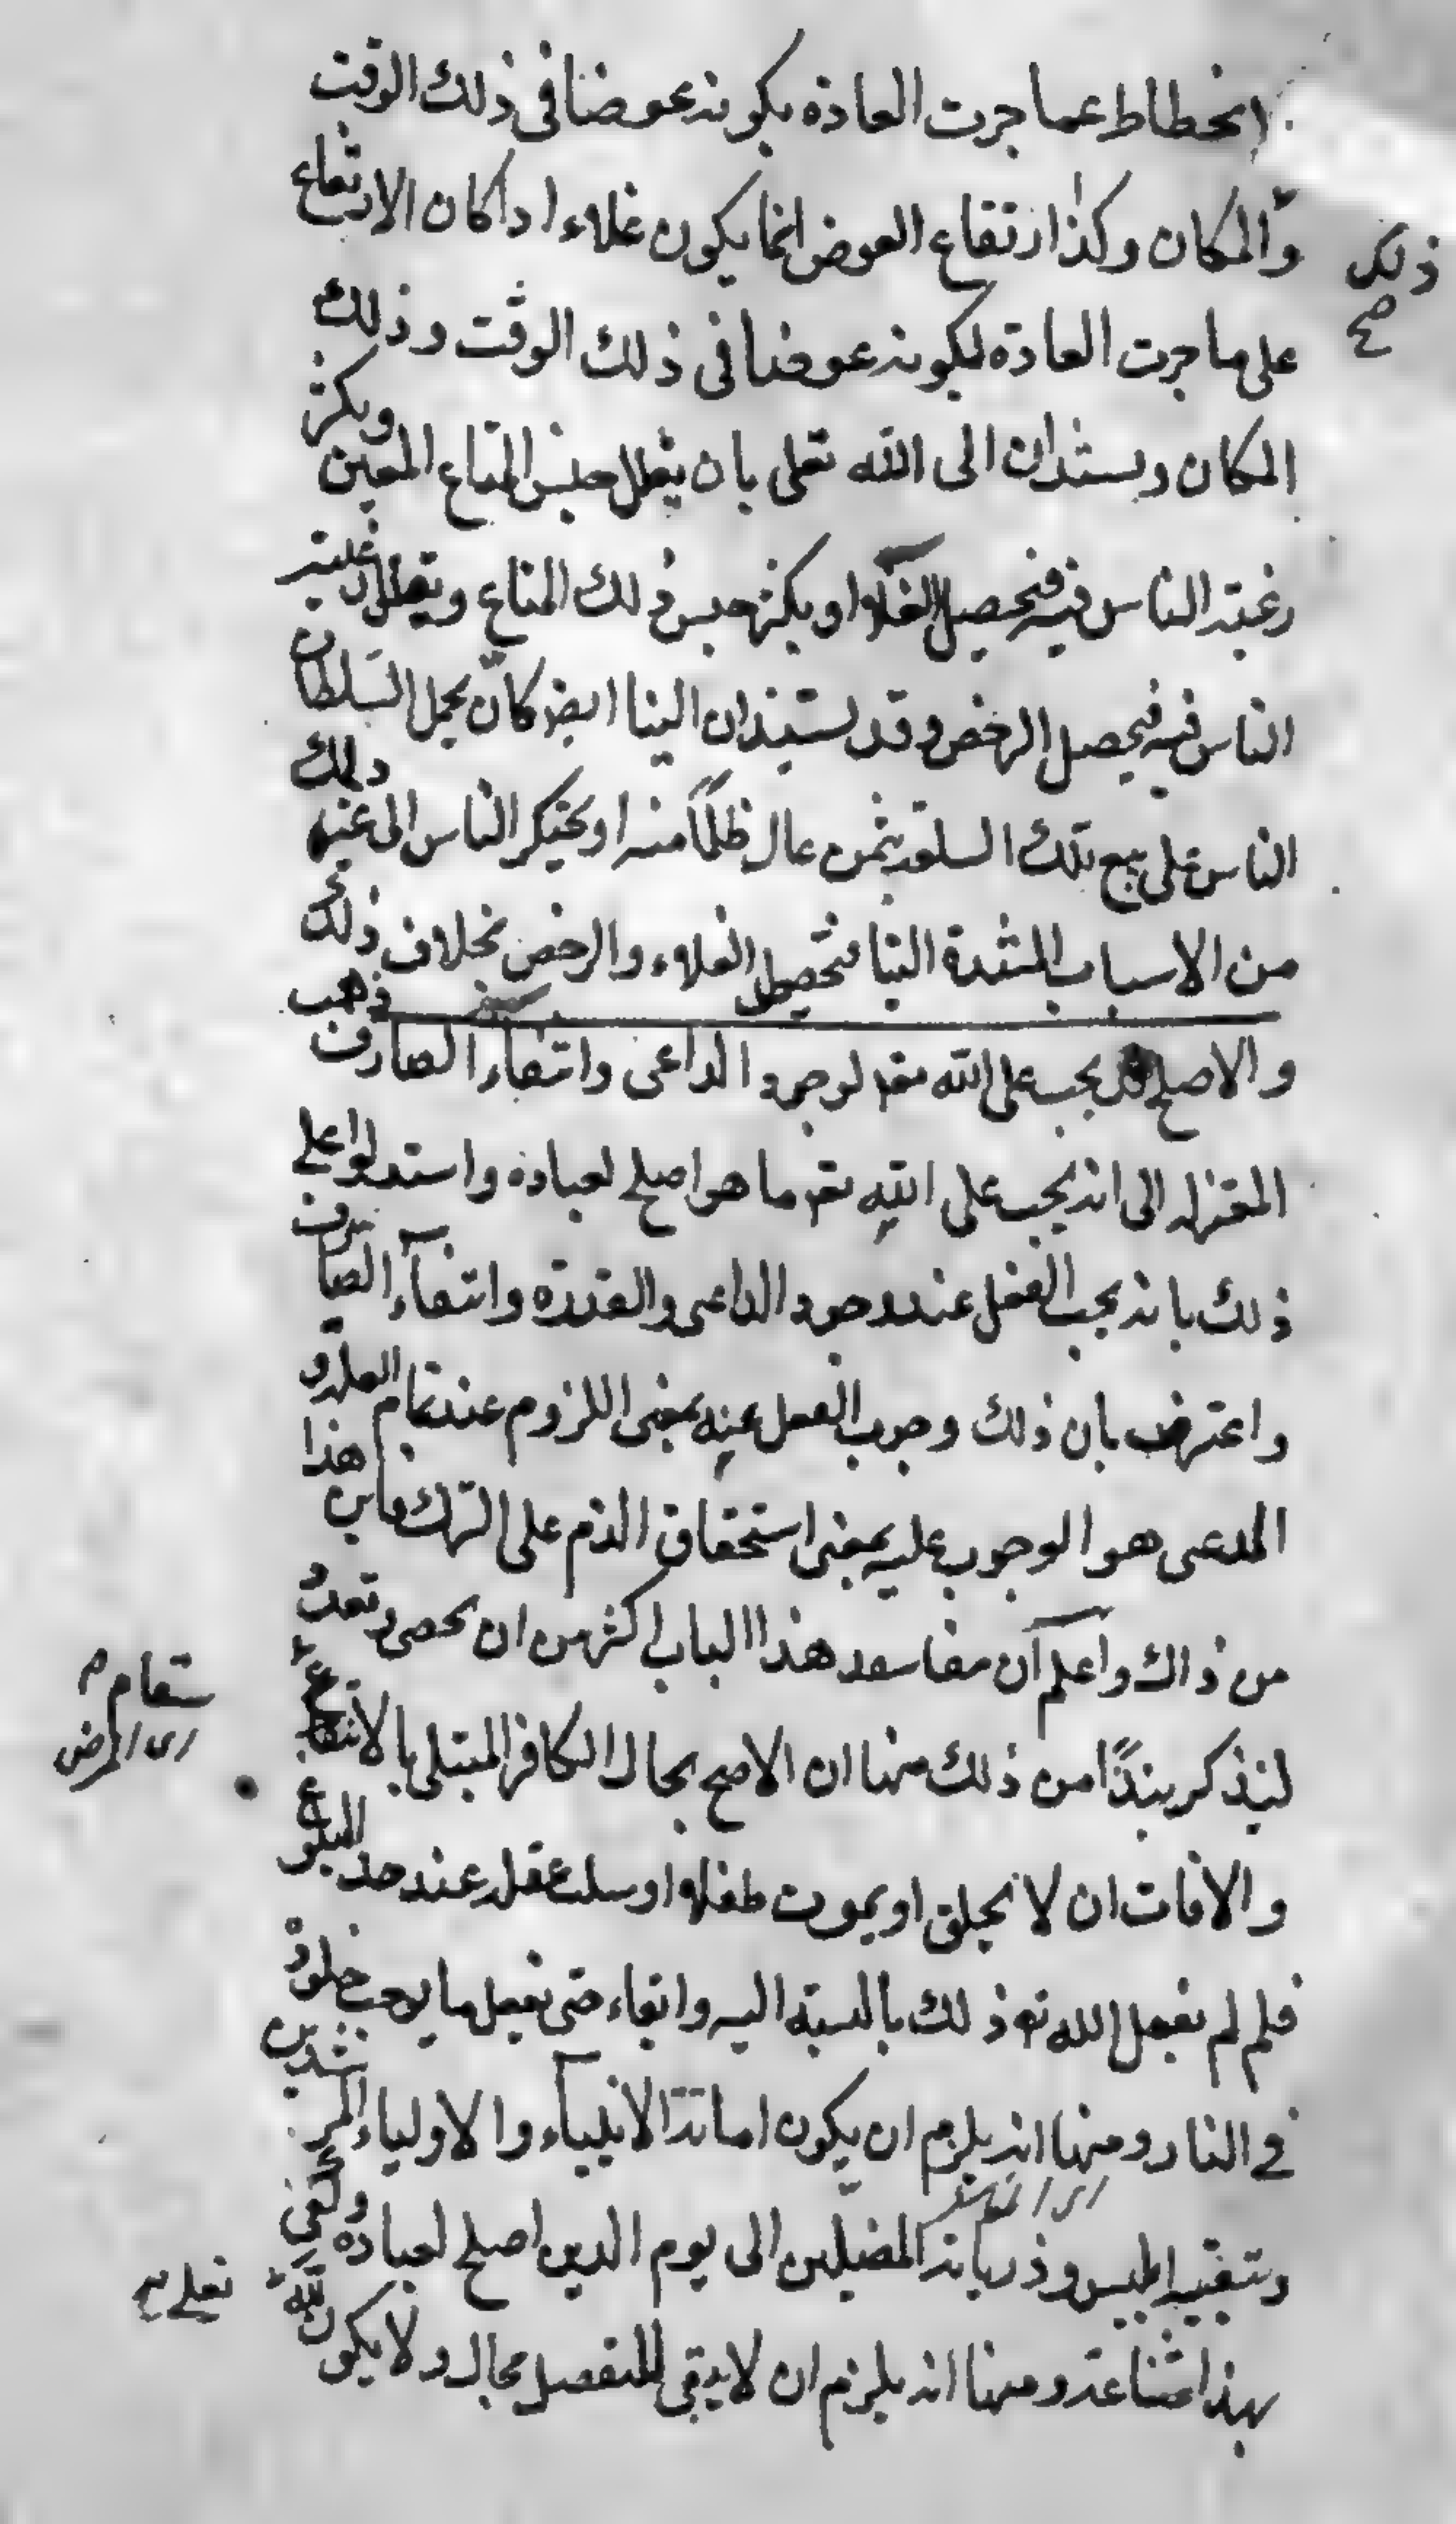 انحطاط عما جرت العادة بكونه عوضا فى ذلك الوقت
والمكان وكذا ارتفاع العوض انما يكون غلاء اذا كان الارتفاع
ذلك صح
على ما جرت العادة لكونه عوضا فى ذلك الوقت وذلك
المكان ويستندان الى الله تعلى بان يقلل جنس المتاع المعين ويكثر
رغبته الناس فيه فيحصل الغلاء او يكثر جنس ذلك المتاع ويقلل رغبته
الناس فيه فيحصل الرخص وقد يستندان الينا ايضا كان يحمل السلطان
الناس على بيع تلك السلعة بثمن غال ظلما منه او يحتكر الناس الى غير ذلك
من الاسباب المستندة الينا فتحصيل الغلاء والرخص بخلاف ذلك
والاصلح قد يجب على الله تعه لوجود الداعى وانتفاء الصارف ذهب
المعتزله الى انه يجب على الله تعه ما هو اصلح لعباده واستدلوا على
ذلك بانه يجب الفعل عند وجود الداعى والقدرة وانتفاء الصارف
واعترض بان ذلك وجوب الفعل عنه بمعنى اللزوم عند تمام العلة و
المدعى هو الوجوب عليه بمعنى استحقاق الذم على الترك فاين هذا
من ذاك واعلم ان مفاسد هذا الباب اكثر من ان يحصى وتعد و
لنذكر نبذا من ذلك منها ان الاصح بحال الكافر المبتلى بالانتفاع
سقام
اى المرض
والافات ان لا يخلق او يموت طفلا او سلب عقله عند حد البلوغ
فلم لم يفعل الله تع ذلك بالنسبة اليه وابقاء حتى يفعل ما يوجب خلوده
فى النار ومنها انه يلزم ان يكون اماتة الانبياء والاولياء المرشدين
وتبقيه ابليس وذرياته المضلين الى يوم الدين اصلح لعباده وكفى
بهذا شناعة ومنها انه يلزم ان لا يبقى للتفضل مجال ولا يكون لله
تعلى